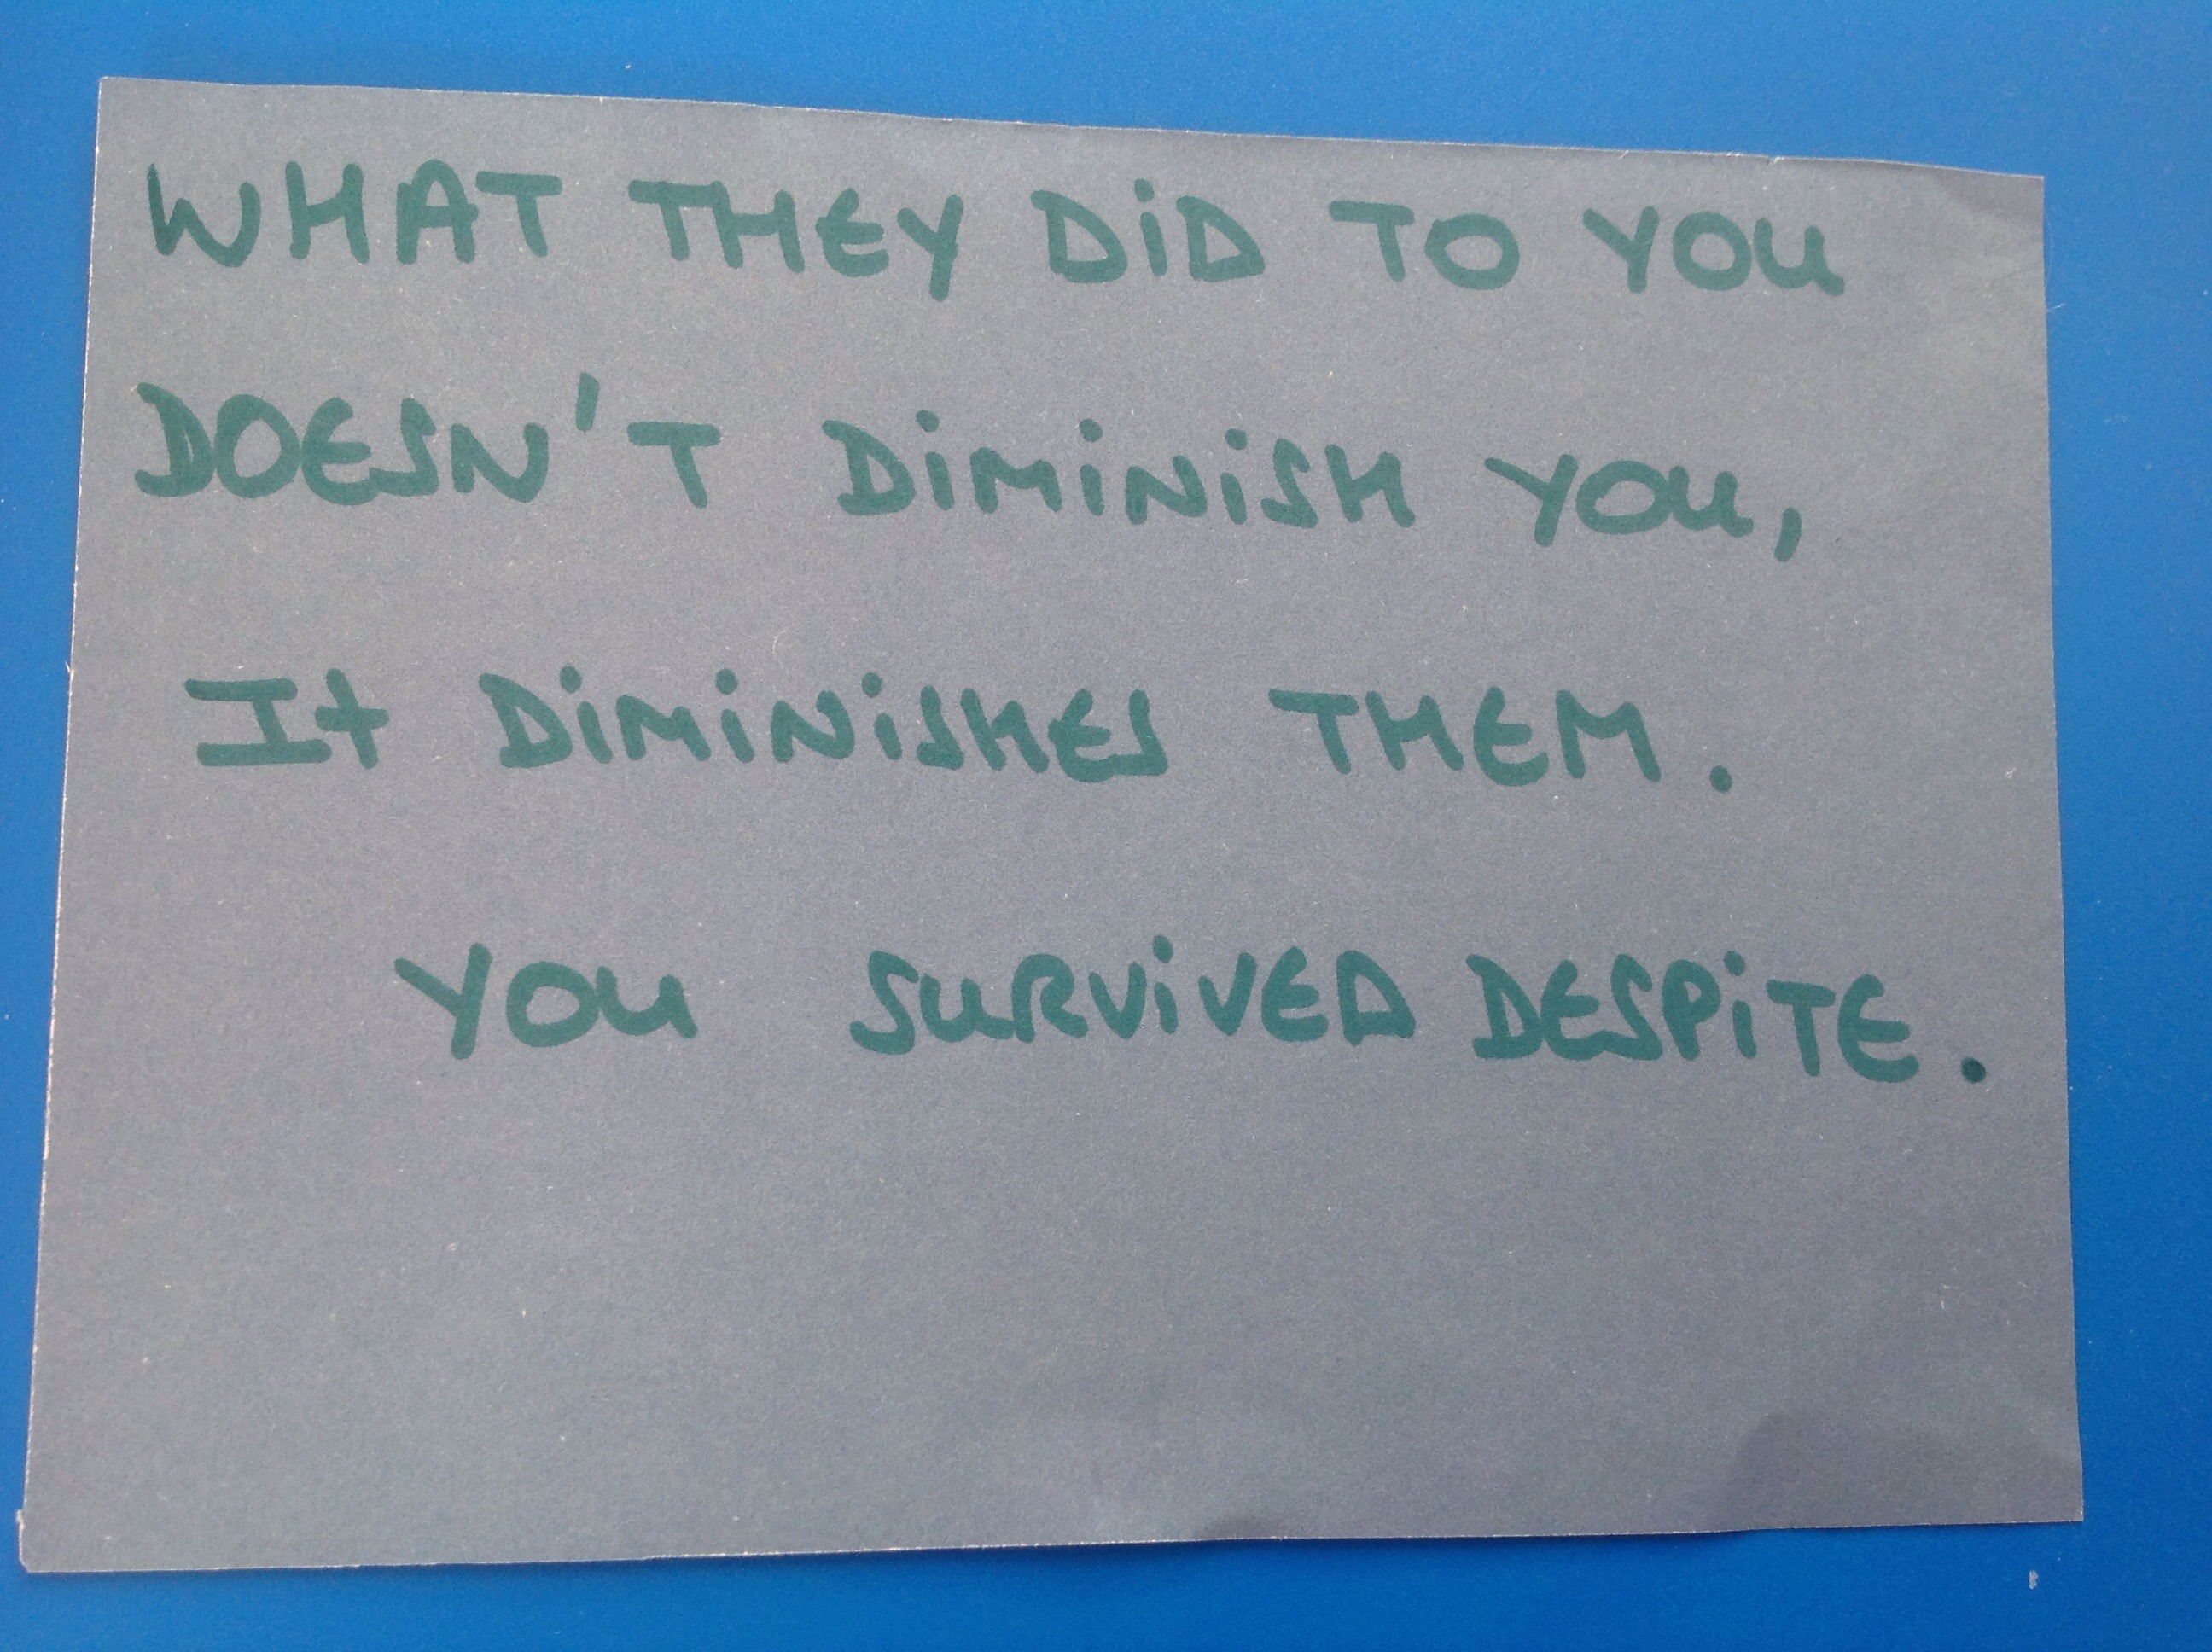 WHAT THEY DID TO YOU
DOESN'T DIMINISH YOU,
It DIMINISHES THEM.
YOU SURVIVED DESPITE.